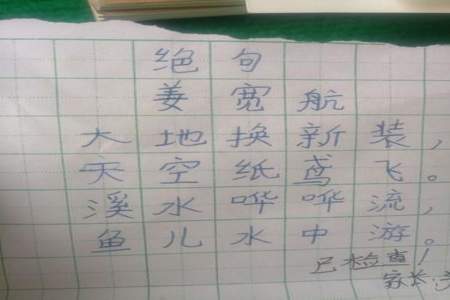 绝句
姜宽航
大地换新装，
天空纸鸢飞。
溪水哗哗流，
鱼儿水中游。
已检查！
家长：